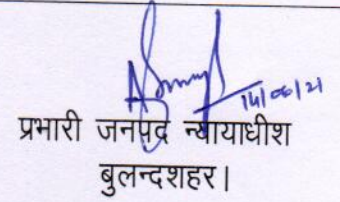 14/06/21
प्रभारी जनपद न्यायाधीश
बुलन्दशहर।